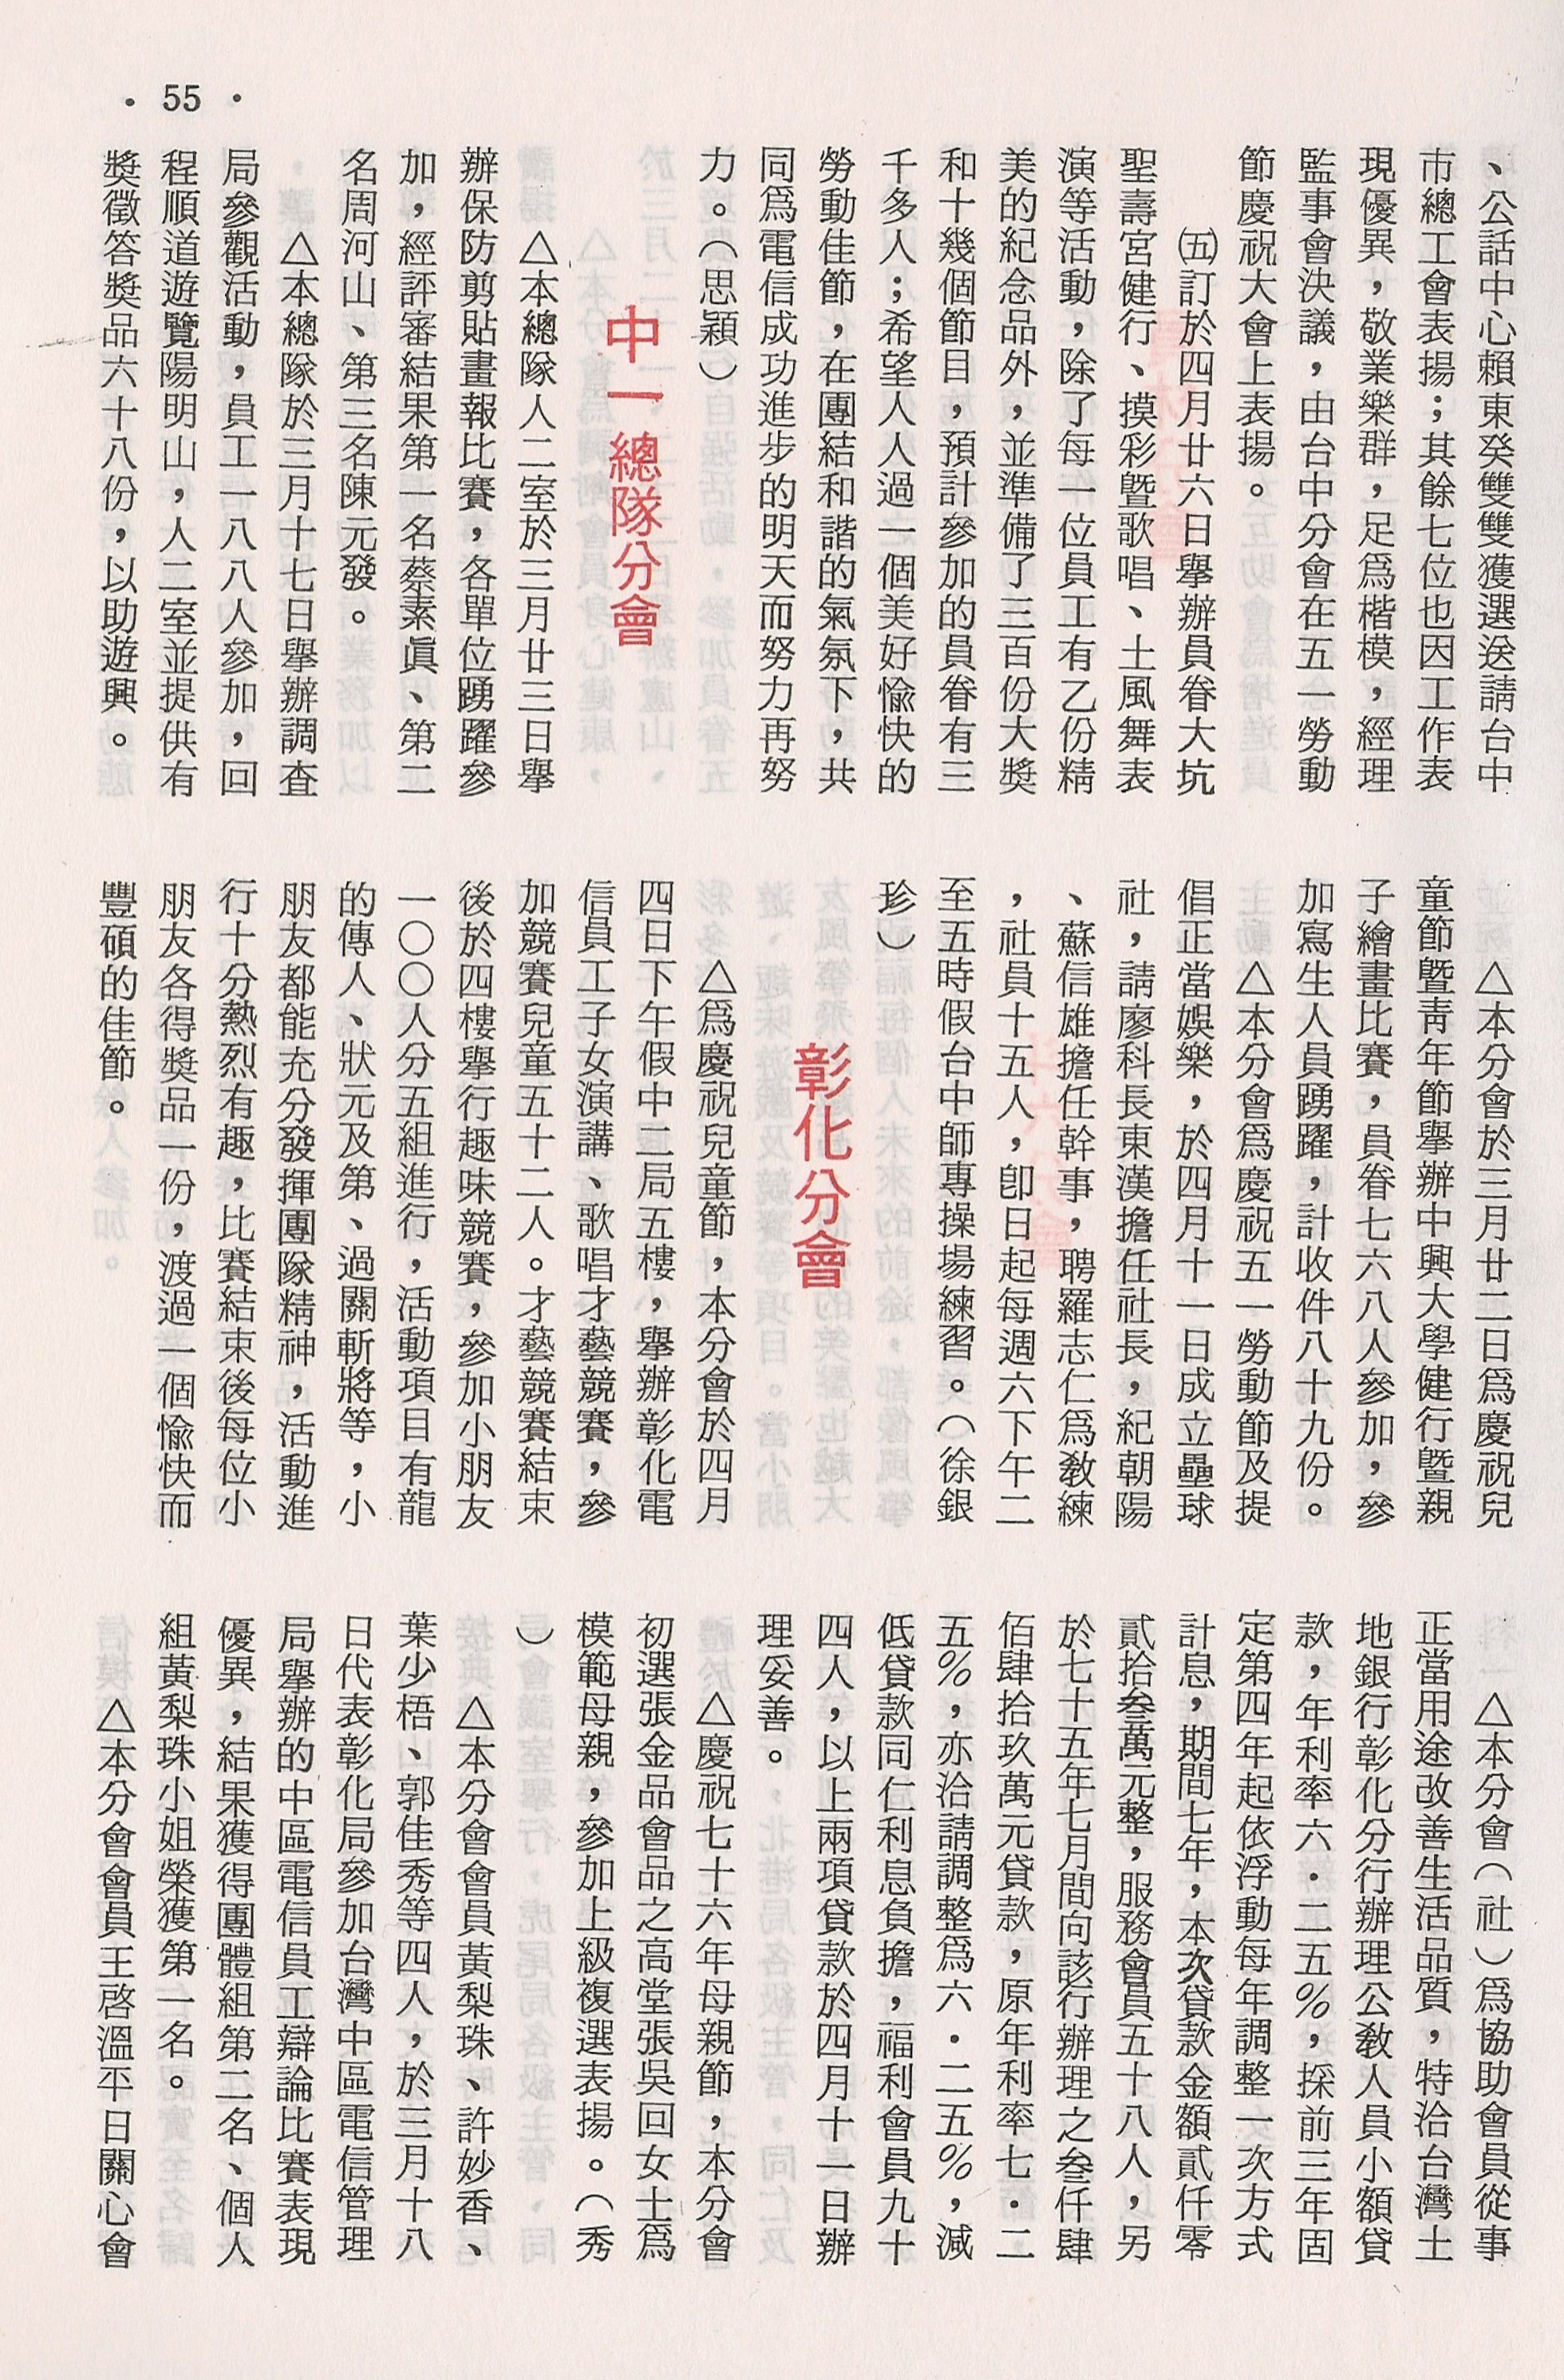 • 55 •
、公話中心賴東癸雙雙獲選送請台中
市總工會表揚；其餘七位也因工作表
現優異，敬業樂群，足爲楷模，經理
監事會決議，由台中分會在五一勞動
節慶祝大會上表揚。
㈤訂於四月廿六日舉辦員眷大坑
聖壽宮健行、摸彩暨歌唱、土風舞表
演等活動，除了每一位員工有乙份精
美的紀念品外，並準備了三百份大獎
和十幾個節目，預計參加的員眷有三
千多人；希望人人過一個美好愉快的
勞動佳節，在團結和諧的氣氛下，共
同爲電信成功進步的明天而努力再努
力。（思穎）
中一總隊分會
△本總隊人二室於三月廿三日舉
辦保防剪貼畫報比賽，各單位踴躍參
加，經評審結果第一名蔡素眞、第二
名周河山、第三名陳元發。
△本總隊於三月十七日舉辦調查
局參觀活動，員工一八八人參加，回
程順道遊覽陽明山，人二室並提供有
獎徵答獎品六十八份，以助遊興。
△本分會於三月廿二日爲慶祝兒
童節暨靑年節舉辦中興大學健行暨親
子繪畫比賽，員眷七六八人參加，參
加寫生人員踴躍，計收件八十九份。
△本分會爲慶祝五一勞動節及提
倡正當娛樂，於四月十一日成立壘球
社，請廖科長東漢擔任社長，紀朝陽
、蘇信雄擔任幹事，聘羅志仁爲敎練
，社員十五人，卽日起每週六下午二
至五時假台中師專操場練習。（徐銀
珍）
彰化分會
△爲慶祝兒童節，本分會於四月
四日下午假中二局五樓，舉辦彰化電
信員工子女演講、歌唱才藝競賽，參
加競賽兒童五十二人。才藝競賽結束
後於四樓舉行趣味競賽，參加小朋友
一〇〇人分五組進行，活動項目有龍
的傳人、狀元及第、過關斬將等，小
朋友都能充分發揮團隊精神，活動進
行十分熱烈有趣，比賽結束後每位小
朋友各得獎品一份，渡過一個愉快而
豐碩的佳節。
△本分會（社）爲協助會員從事
正當用途改善生活品質，特洽台灣土
地銀行彰化分行辦理公敎人員小額貸
款，年利率六．二五％，採前三年固
定第四年起依浮動每年調整一次方式
計息，期間七年，本次貸款金額貳仟零
貳拾叁萬元整，服務會員五十八人，另
於七十五年七月間向該行辦理之叁仟肆
佰肆拾玖萬元貸款，原年利率七．二
五％，亦洽請調整爲六．二五％，減
低貸款同仁利息負擔，福利會員九十
四人，以上兩項貸款於四月十一日辦
理妥善。
△慶祝七十六年母親節，本分會
初選張金品會品之高堂張吳回女士爲
模範母親，參加上級複選表揚。（秀
）
△本分會會員黃梨珠、許妙香、
葉少梧、郭佳秀等四人，於三月十八
日代表彰化局參加台灣中區電信管理
局舉辦的中區電信員工辯論比賽表現
優異，結果獲得團體組第二名、個人
組黃梨珠小姐榮獲第一名。
△本分會會員王啓溫平日關心會